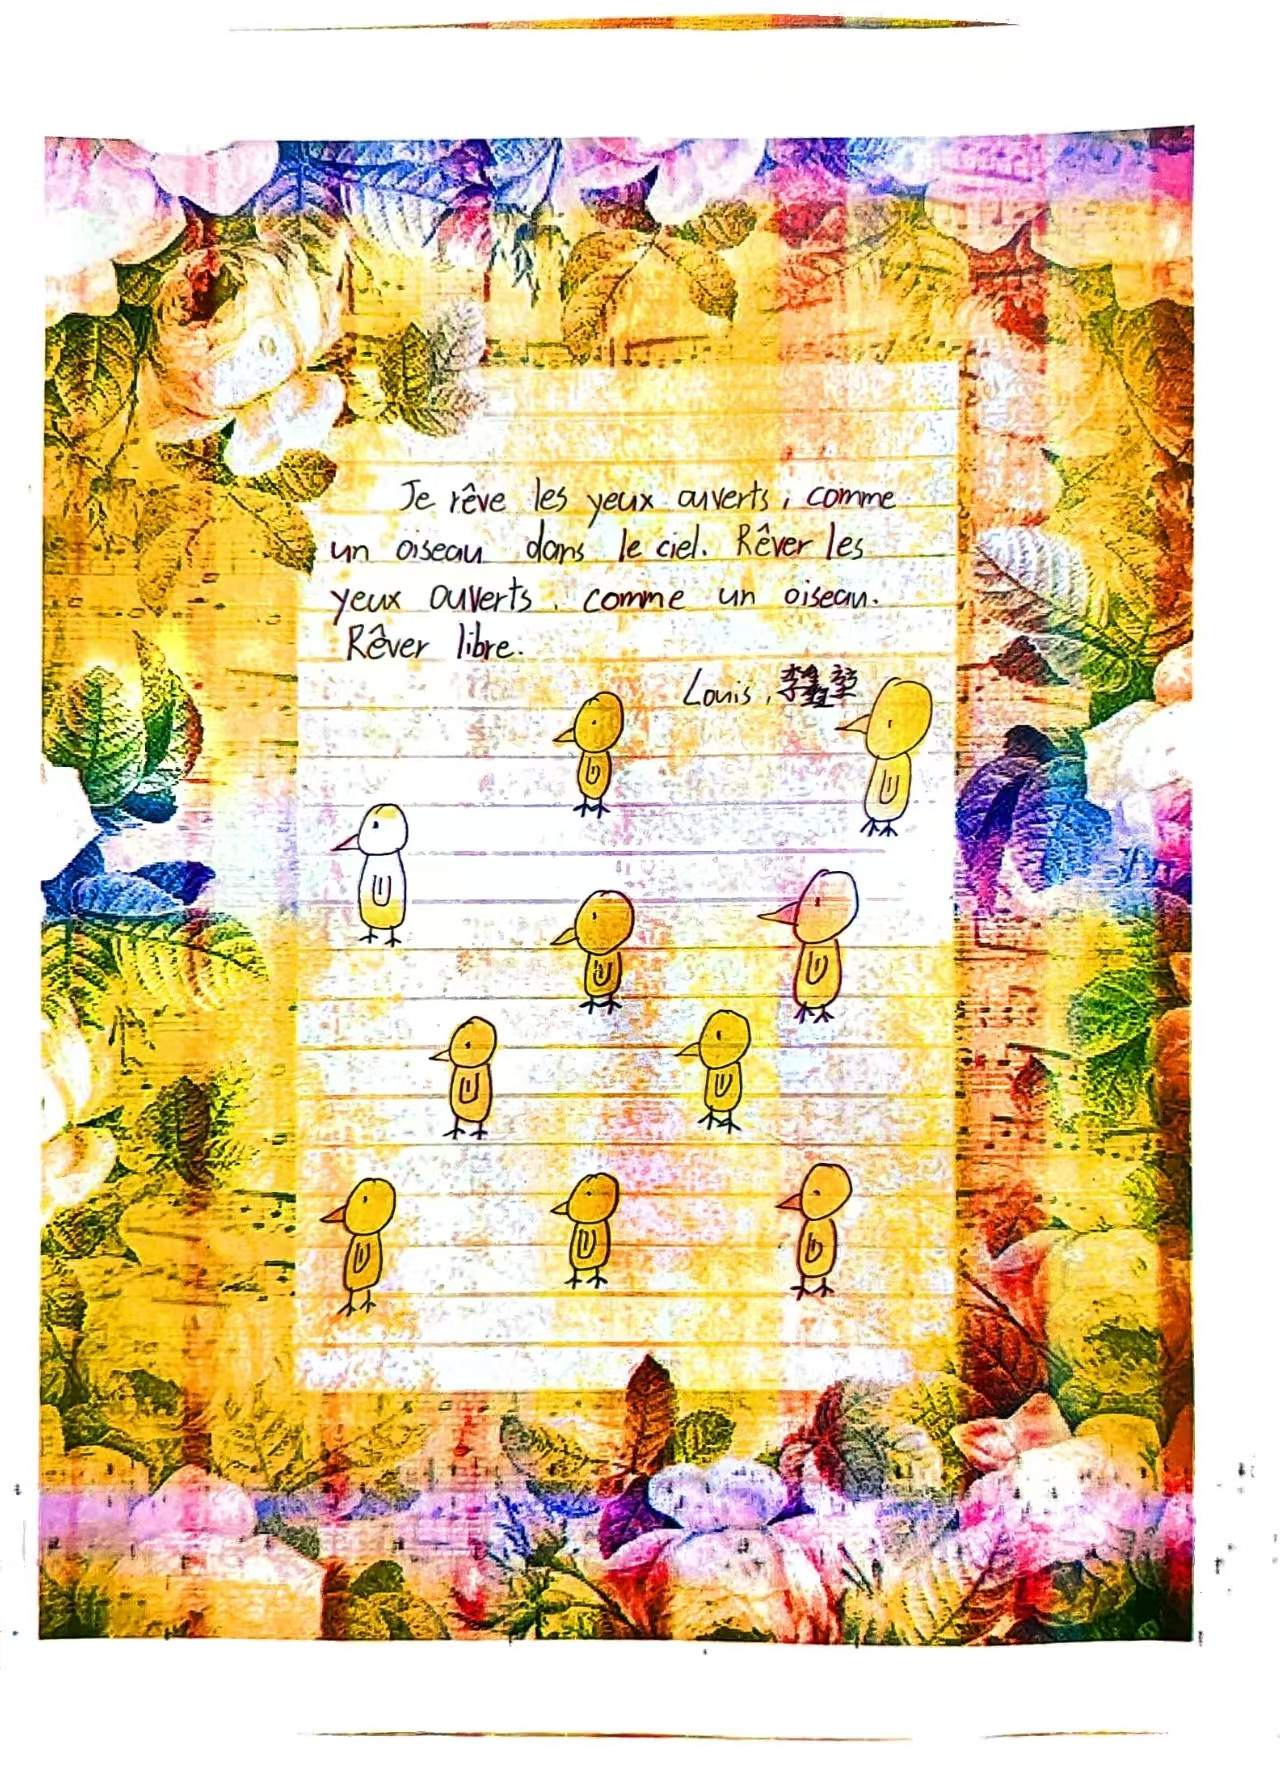 Je rêve les yeux ouverts, comme
un oiseau dans le ciel. Rêver les
yeux ouverts, comme un oiseau.
Rêver libre.
Louis, 李